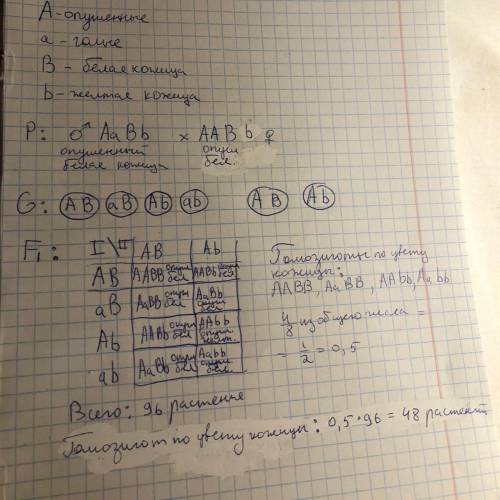 A - опушенные
a - голые
B - белая кожица
b - желтая кожица
P: ♂ AaBb × AABb ♀
опушенный опуш
белая кожица бел.
G: AB aB Ab ab AB Ab
F₁: I\II AB Ab
AB AABB опуш бел AABb опуш бел
aB AaBB опуш бел AaBb опуш бел
Ab AABb опуш бел AAbb опуш желт.
ab AaBb опуш бел Aabb опуш бел.
Гомозиготы по цвету
кожицы:
AABB, AaBB, AAbb, Aabb
4/8 из общего числа =
= 1/2 = 0,5
Всего: 96 растение
Гомозигот по цвету кожицы: 0,5 · 96 = 48 растент